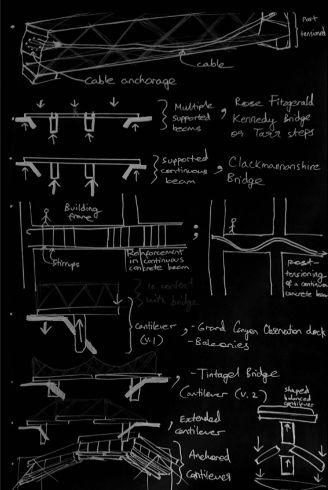 Post
tensioned
cable
cable anchorage
Multiple
supported
beams
, Rose Fitzgerald
Kennedy Bridge
or Tarr steps
Supported
continuous
beam
, Clackmannanshire
Bridge
Building
frame
;
stirrups
Reinforcement
in continuous
concrete beam
Post-
tensioning
of a continuous
concrete beam
with bridge
Cantilever
(v.1)
, - Grand Canyon Observation deck
- Balconies
, - Tintagel Bridge
Cantilever (v.2)
shaped
balanced
cantilever
Extended
cantilever
Anchored
Cantilever